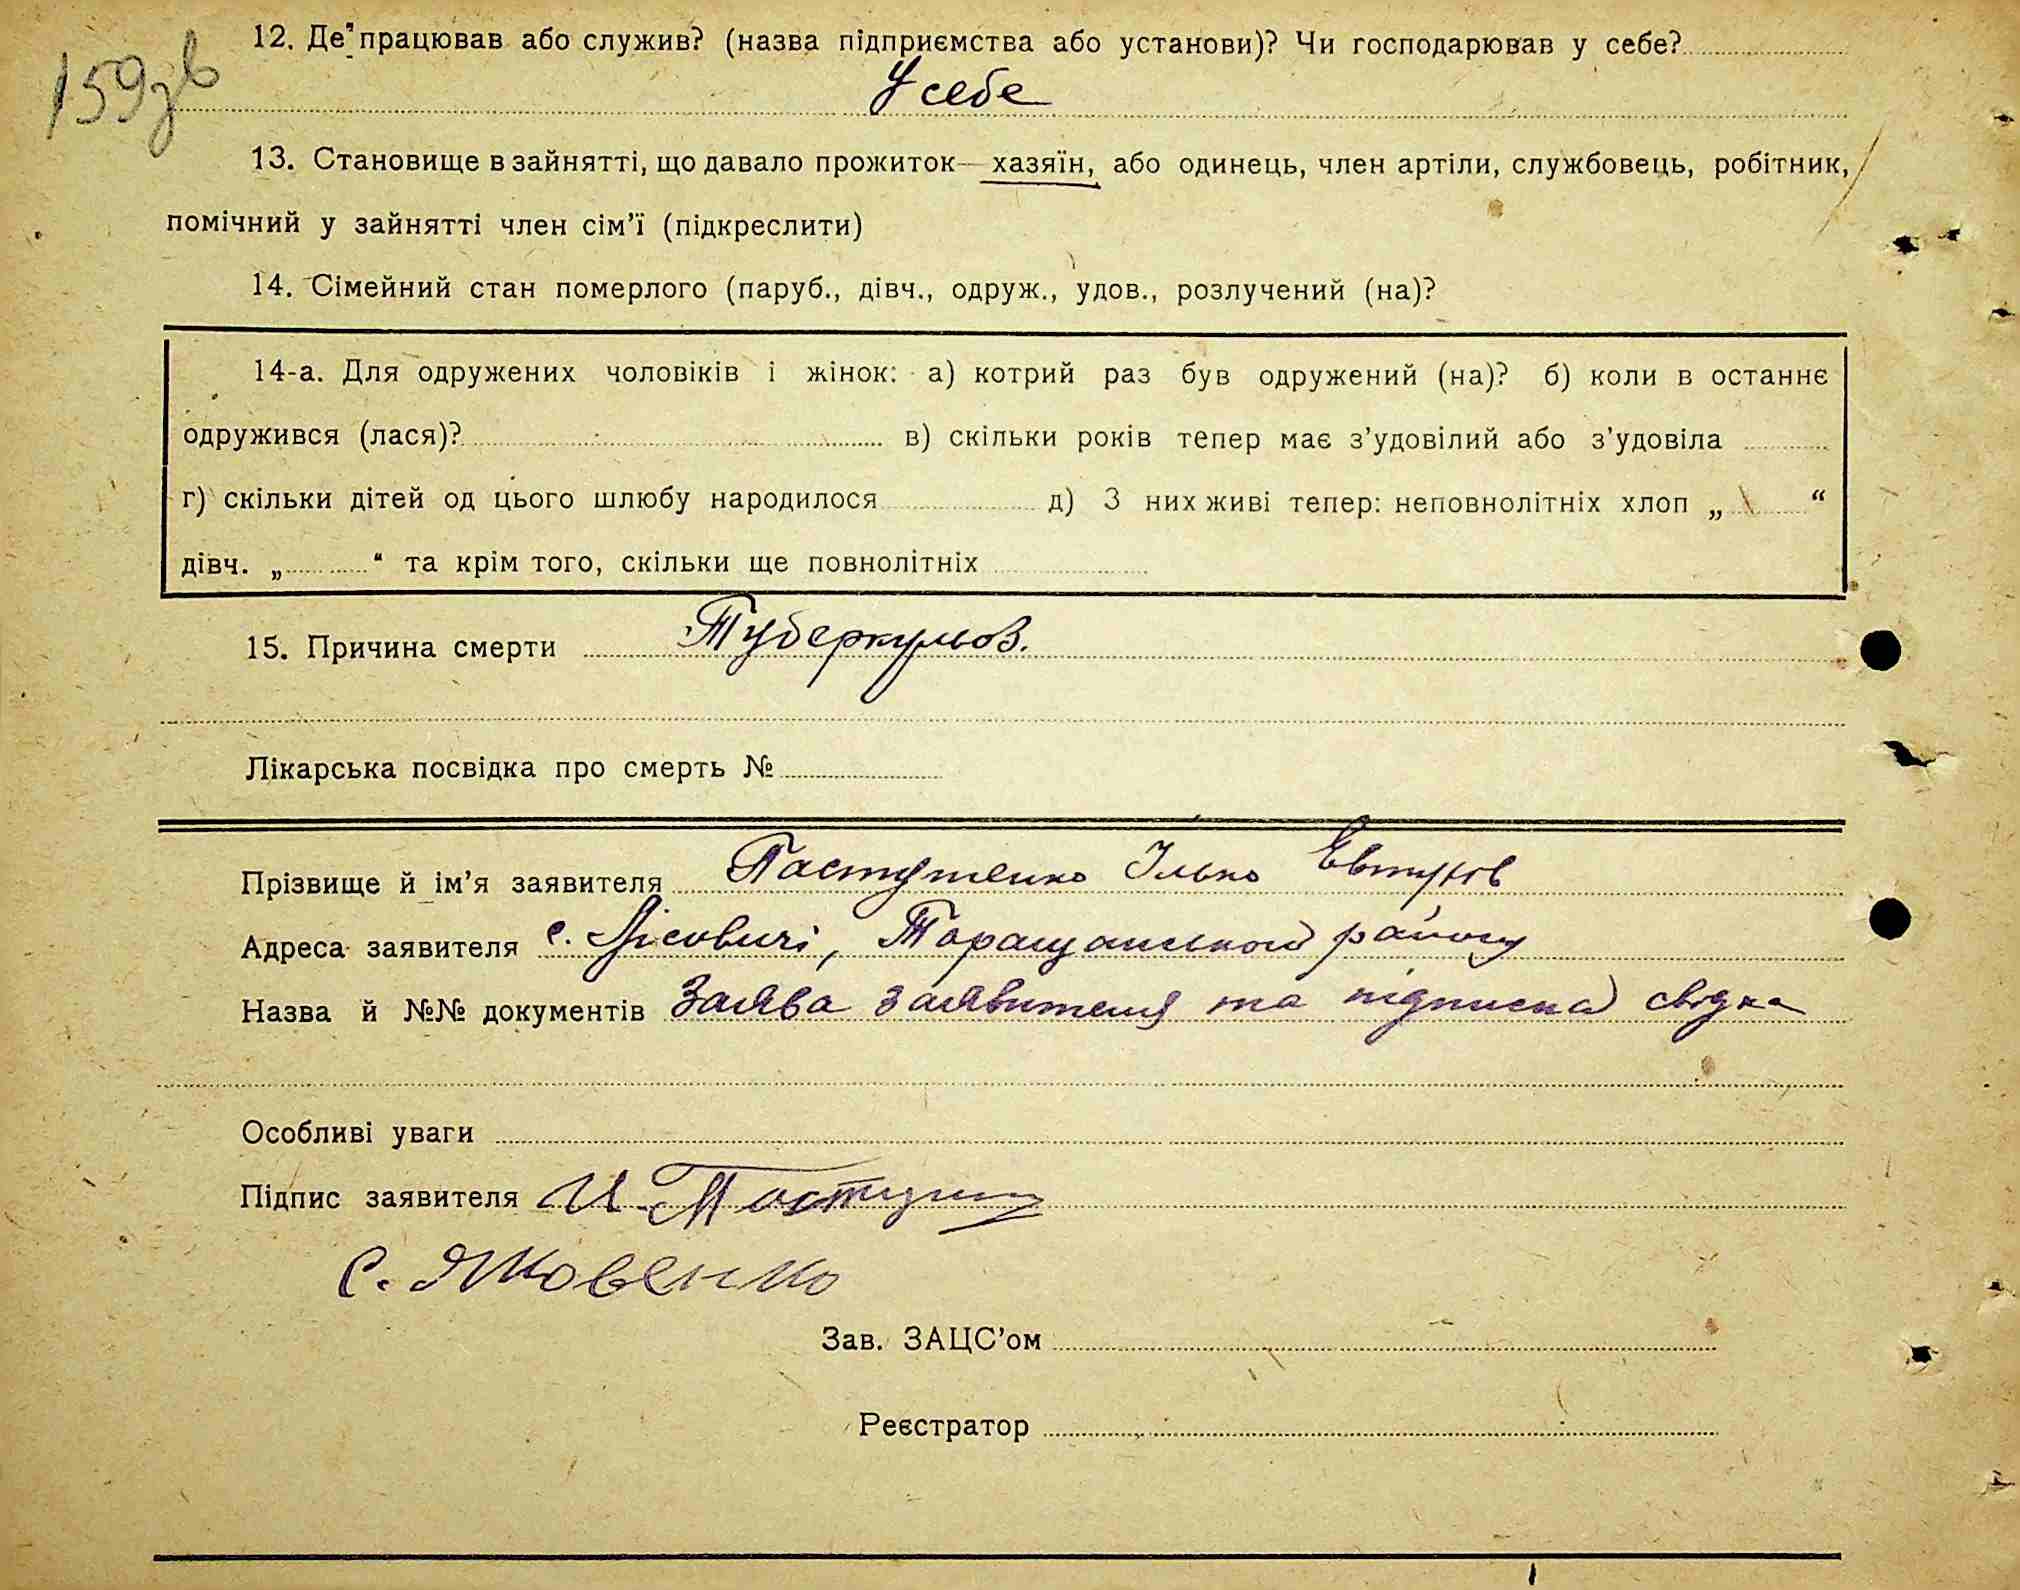 159зв
12. Де працював або служив? (назва підприємства або установи)? Чи господарював у себе?
У себе
13. Становище в зайнятті, що давало прожиток— хазяїн, або одинець, член артіли, службовець, робітник,
помічний у зайнятті член сім’ї (підкреслити)
14. Сімейний стан померлого (паруб., дівч., одруж., удов., розлучений (на)?
14-а. Для одружених чоловіків і жінок: а) котрий раз був одружений (на)? б) коли в останнє
одружився (лася)? в) скільки років тепер має з’удовілий або з’удовіла
г) скільки дітей од цього шлюбу народилося д) З них живі тепер: неповнолітніх хлоп „ “
дівч. „ “ та крім того, скільки ще повнолітніх
15. Причина смерти Туберкульоз.
Лікарська посвідка про смерть №
Прізвище й ім’я заявителя Пастушенко Ілько Евтухов
Адреса заявителя с. Лісовичі, Таращанської району
Назва й №№ документів Заява заявителя та підписка свідка
Особливі уваги
Підпис заявителя И. Пастуш
С. Яковенко
Зав. ЗАЦС’ом
Реєстратор